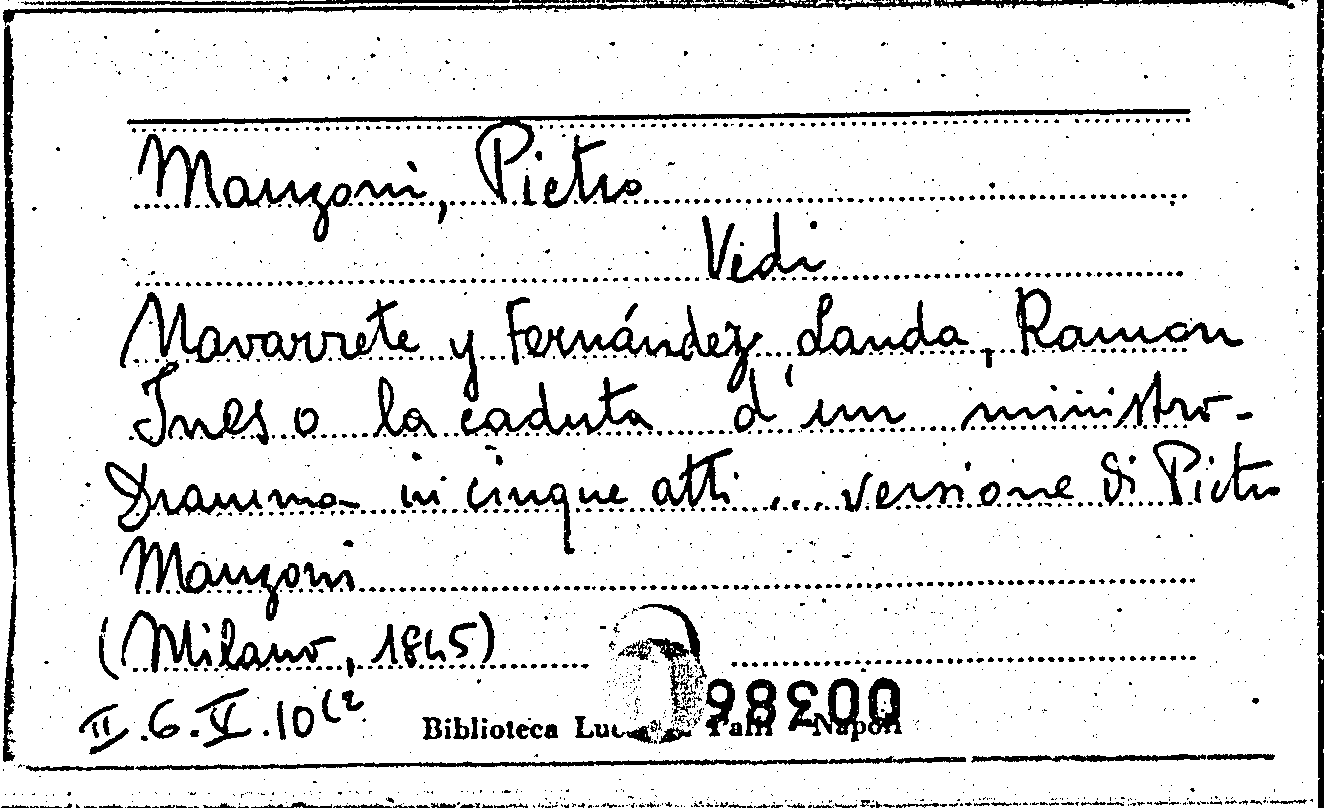 Manzoni, Pietro
Vedi
Navarrete y Fernández Landa, Ramon
Ines o la caduta d'un ministro-
Dramma in cinque atti ... versione di Pietro
Manzoni
(Milano, 1845)
II.6.V.10(2
Biblioteca Napoli